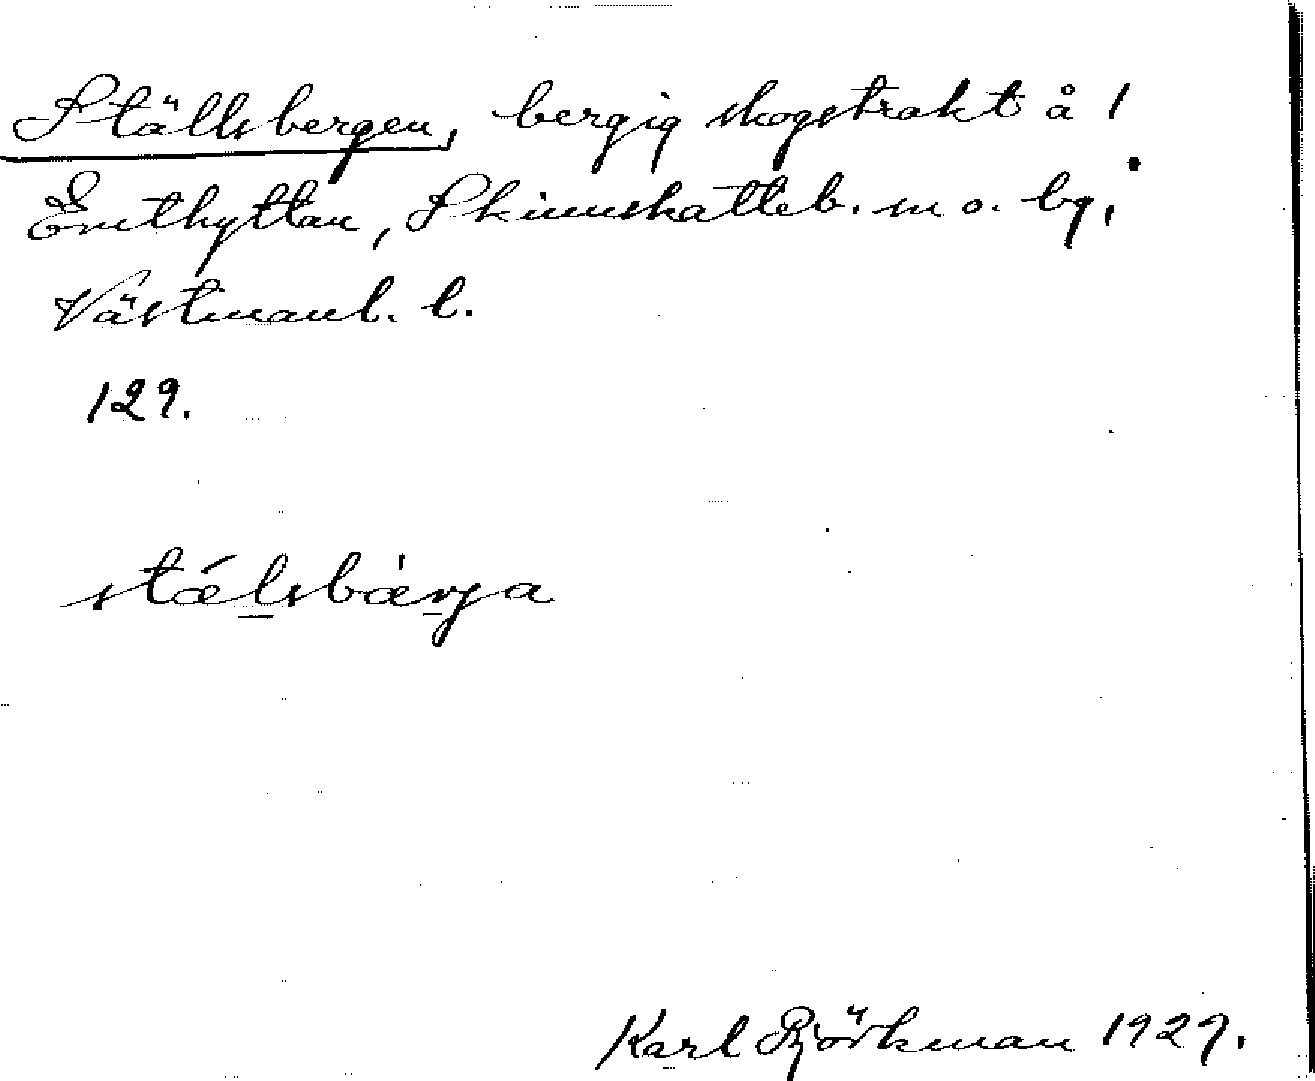 Ställsbergen, bergig skogstrakt å 1
Enthyttan, Skinnskatteb. sn o. by,
Västmanl. l.
129.
stálsbárja
Karl Björkman 1929.